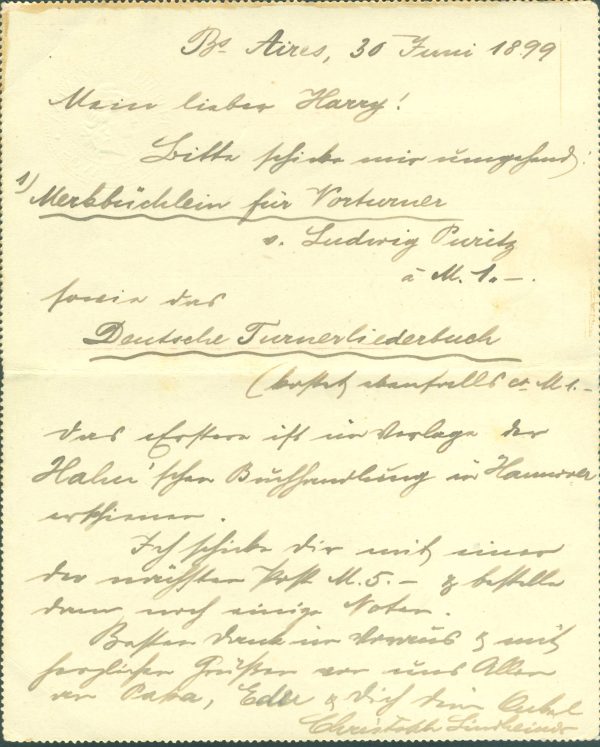 Bs Aires, 30 Juni 1899
Mein lieber Harry!
Bitte schicke mir umgehend:
1) Merkbüchlein für Vorturner
v. Ludwig Puritz
à M. 1.—.
sowie das
Deutsche Turnerliederbuch
(kostet ebenfalls ca M 1.–
das Erstere ist im Verlage der
Hahn'schen Buchhandlung in Hannover
erschienen.
Ich schicke Dir mit einer
der nächsten Post M. 5.– & bestelle
dann noch einige Noten.
Besten Dank im Voraus & mit
herzlichen Grüßen von uns Allen
an Papa, & Dich Dein Onkel
Christoph